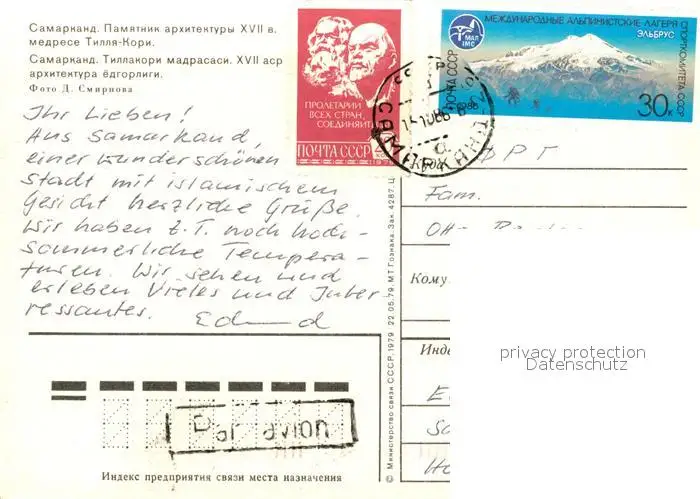 Самарканд. Памятник архитектуры XVII в.
медресе Тилля-Кори.
Самарканд. Тиллакори мадрасаси. XVII аср
архитектура ёдгорлиги.
Фото Д. Смирнова
Ihr Lieben!
Aus Samarkand,
einer wunderschönen
Stadt mit islamischem
Gesicht herzliche Grüße.
Wir haben z.T. noch hoch-
sommerliche Tempera-
turen. Wir sehen und
erleben Vieles und Inter
ressantes.
Индекс предприятия связи места назначения
Par avion
© Министерство связи СССР, 1979 22.05.79. МТ Гознака. Зак. 4287. Ц
ПРОЛЕТАРИИ
ВСЕХ СТРАН,
СОЕДИНЯЙТ
ПОЧТА СССР
1976
МАЛ
IMC
МЕЖДУНАРОДНЫЕ АЛЬПИНИСТСКИЕ ЛАГЕРЯ
СПОРТКОМИТЕТА СССР
ЭЛЬБРУС
ПОЧТА СССР
1986
30к
Куда
ФРГ
Fam.
Кому
Инде
privacy protection
Datenschutz